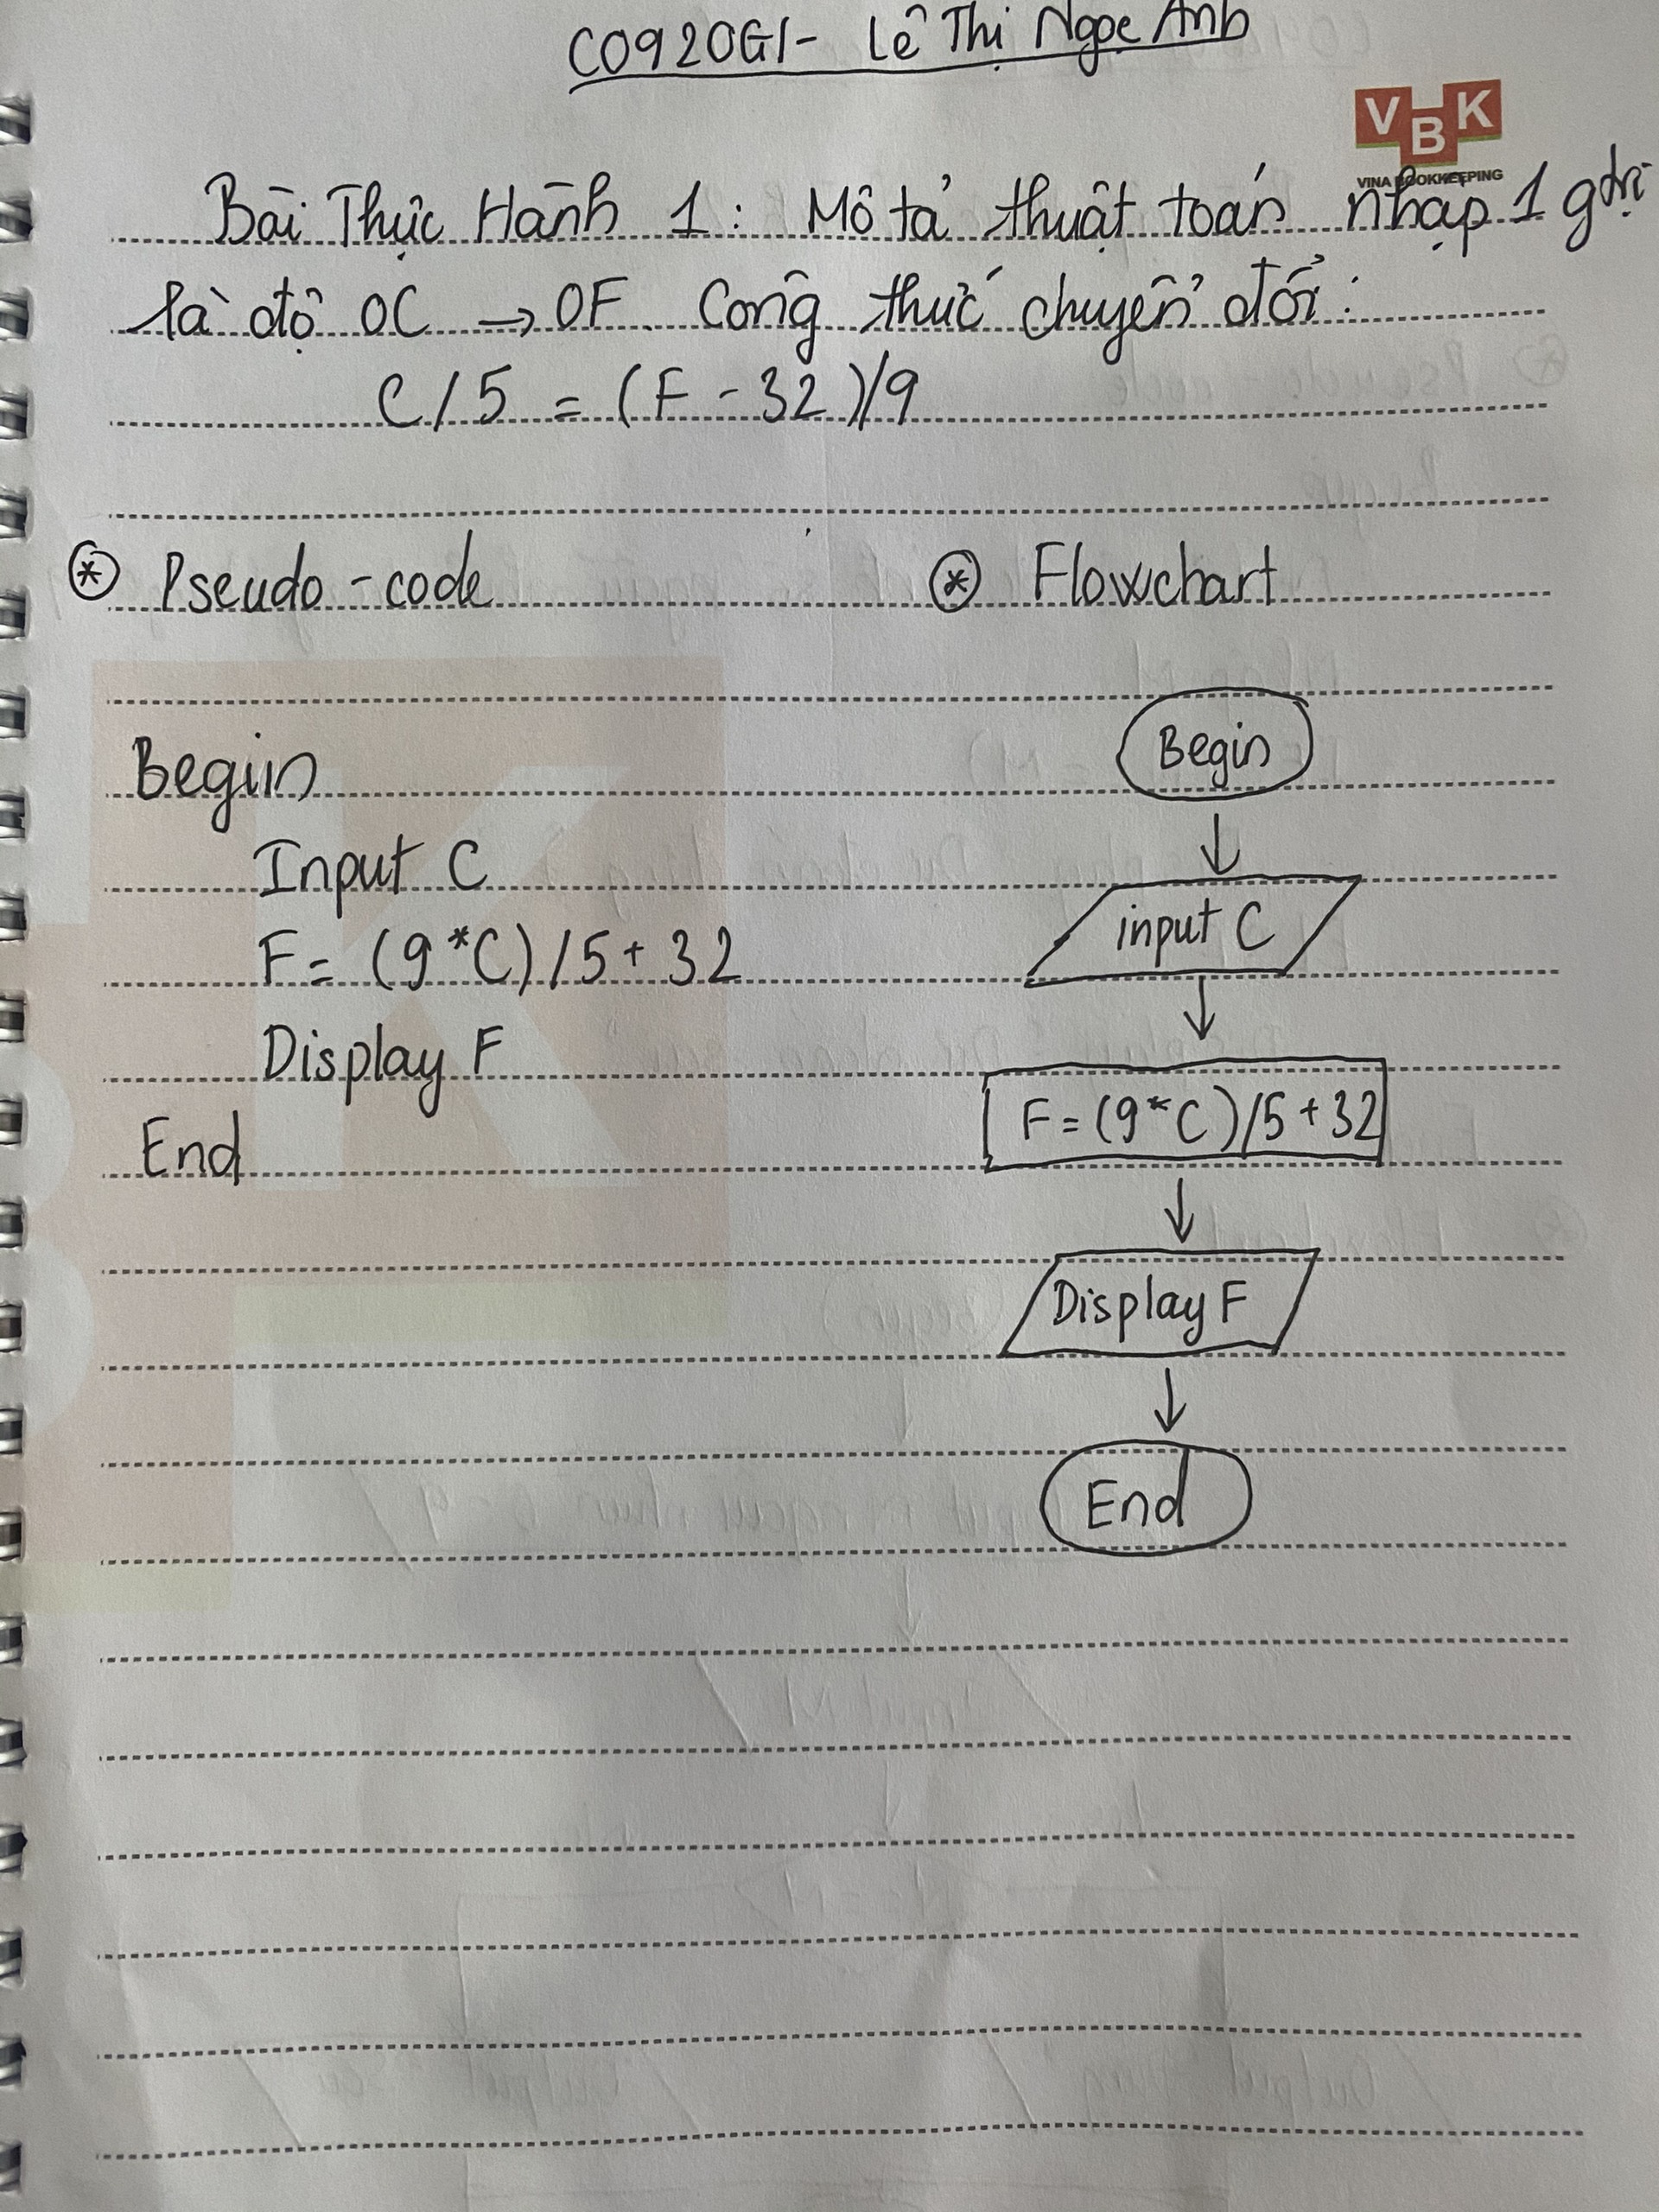 C0920G1- Lê Thị Ngọc Anh
VBK
VINA BOOKKEEPING
Bài Thực Hành 1: Mô tả thuật toán nhập 1 gtrị
là độ OC → OF. Công thức chuyển đổi:
C/5 = (F - 32)/9
* Pseudo-code
Begin
Input C
F = (9*C)/5 + 32
Display F
End
* Flowchart
Begin
input C
F = (9*C)/5 + 32
Display F
End